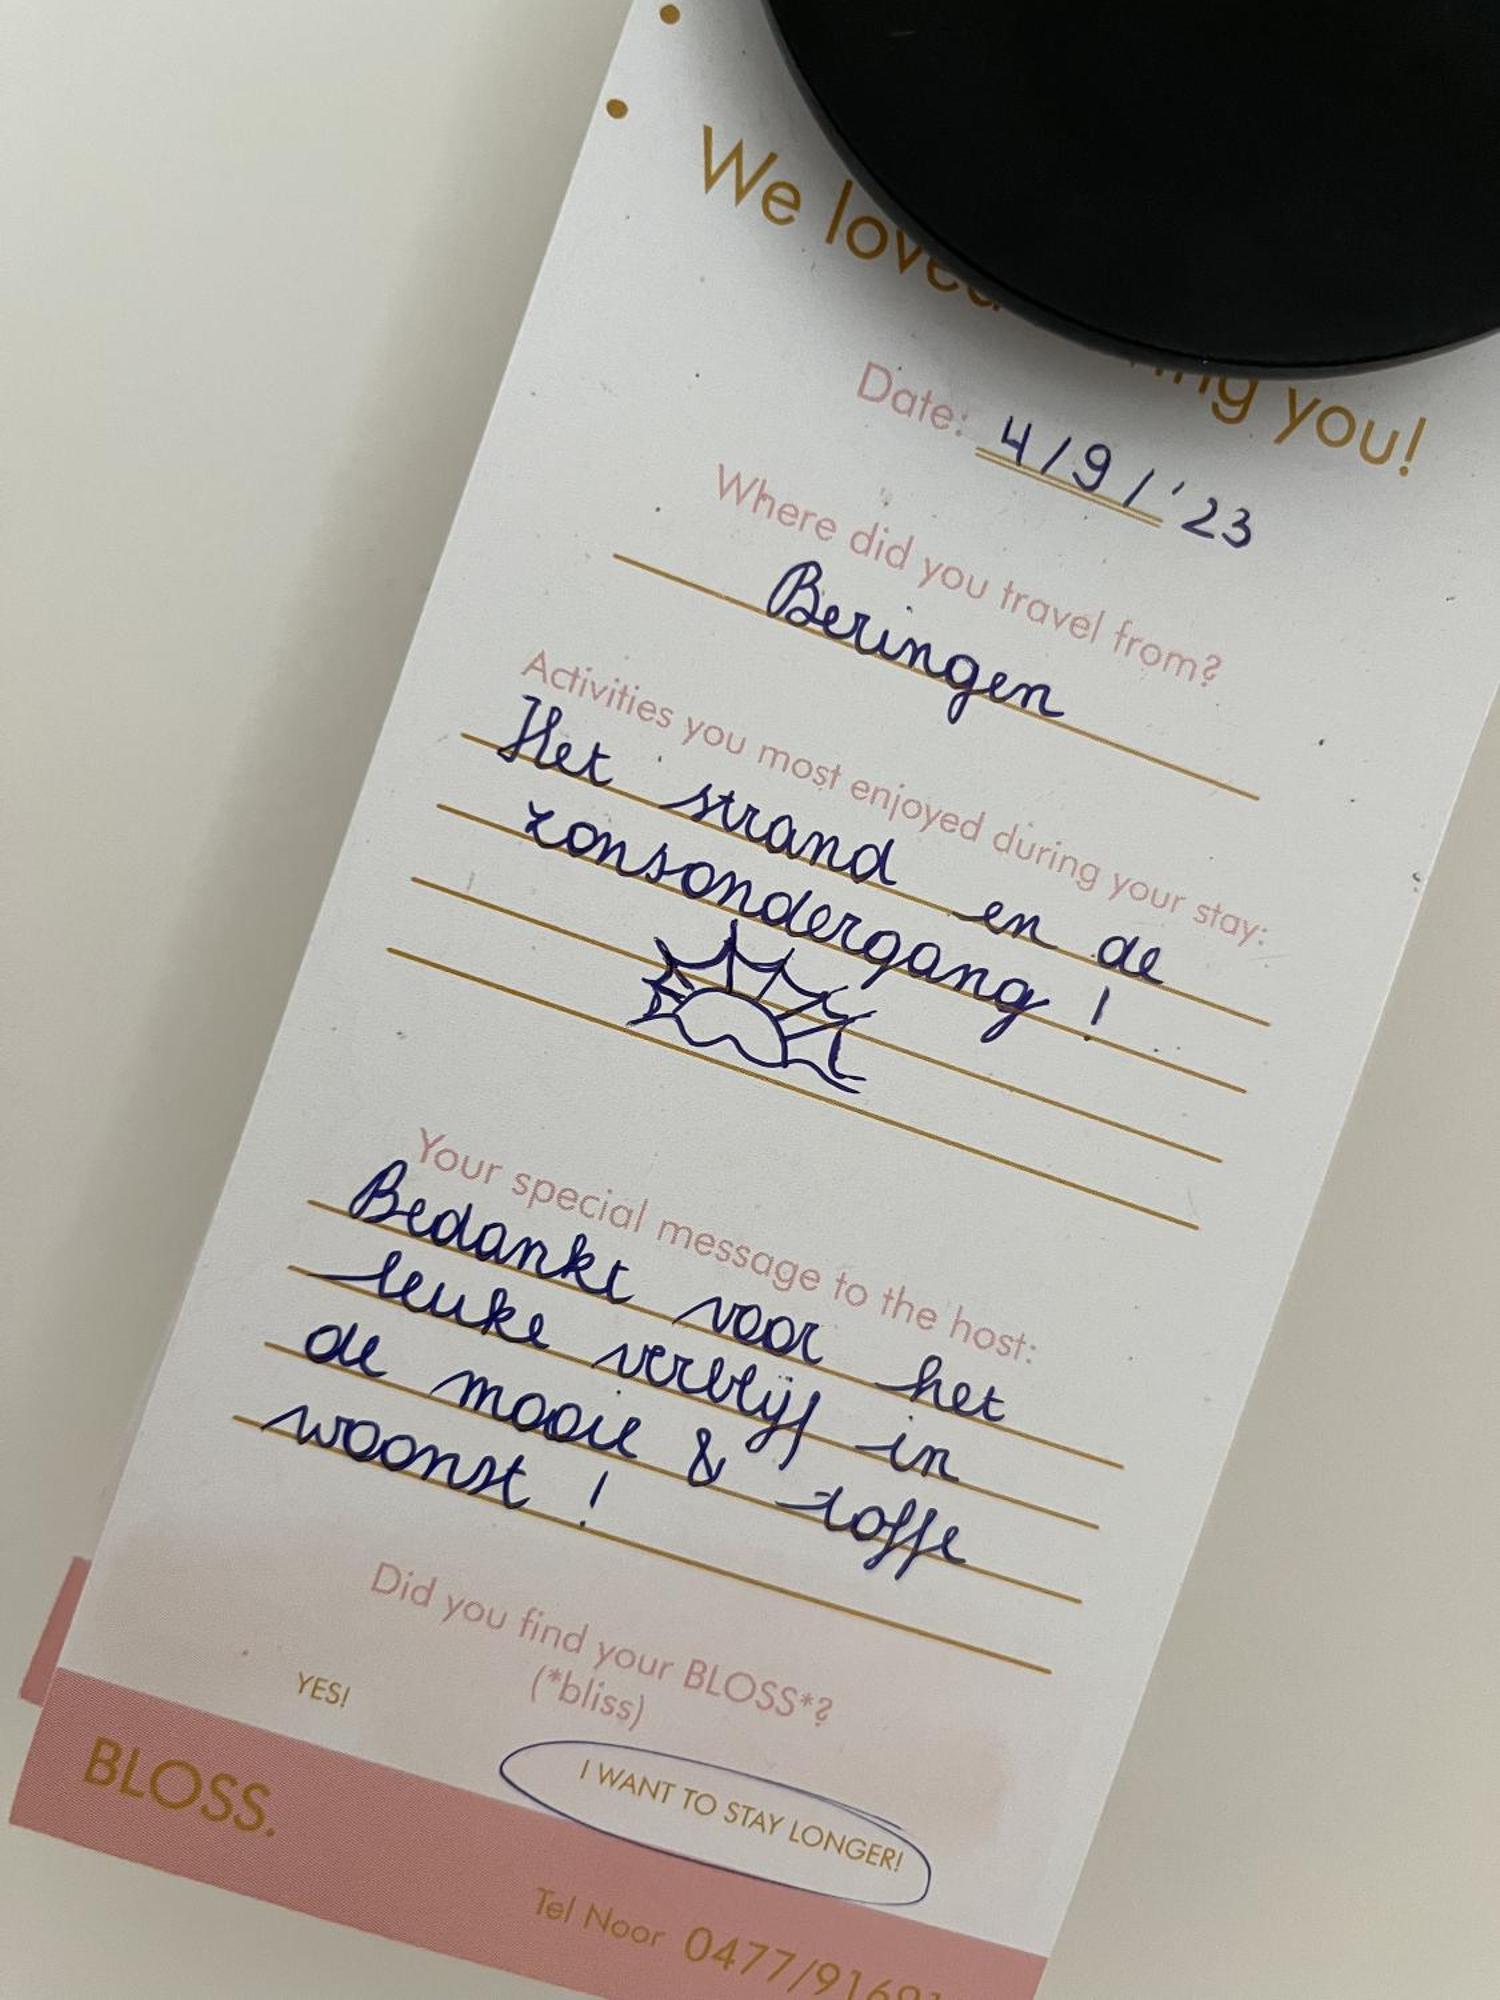 We loved
you!
Date: 4/9/'23
Where did you travel from?
Beringen
Activities you most enjoyed during your stay:
Het strand en de
zonsondergang!
Your special message to the host:
Bedankt voor het
leuke verblijf in
de mooie & toffe
woonst!
Did you find your BLOSS*?
(*bliss)
YES!
I WANT TO STAY LONGER!
BLOSS.
Tel Noor 0477/91691